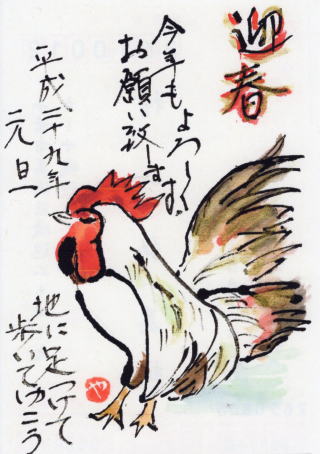 迎春
今年もよろしく
お願い致します
平成二十九年
元旦
地に足つけて
歩いてゆこう
や